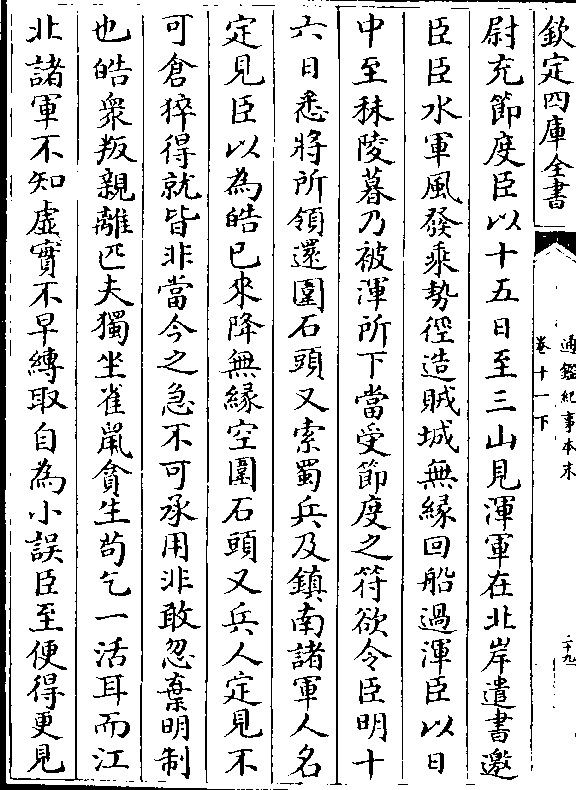 欽定四庫全書
通鑑紀事本末
卷十一下
二十九
尉充節度臣以十五日至三山見渾軍在北岸遣書邀
臣臣水軍風發乘勢徑造賊城無縁回船過渾臣以日
中至秣陵暮乃被渾所下當受節度之符欲令臣明十
六日悉將所領還圍石頭又索蜀兵及鎮南諸軍人名
定見臣以為皓已來降無縁空圍石頭又兵人定見不
可倉猝得就皆非當今之急不可承用非敢忽棄明制
也皓衆叛親離匹夫獨坐雀䑕貪生苟乞一活耳而江
北諸軍不知虛實不早縛取自為小誤臣至便得更見